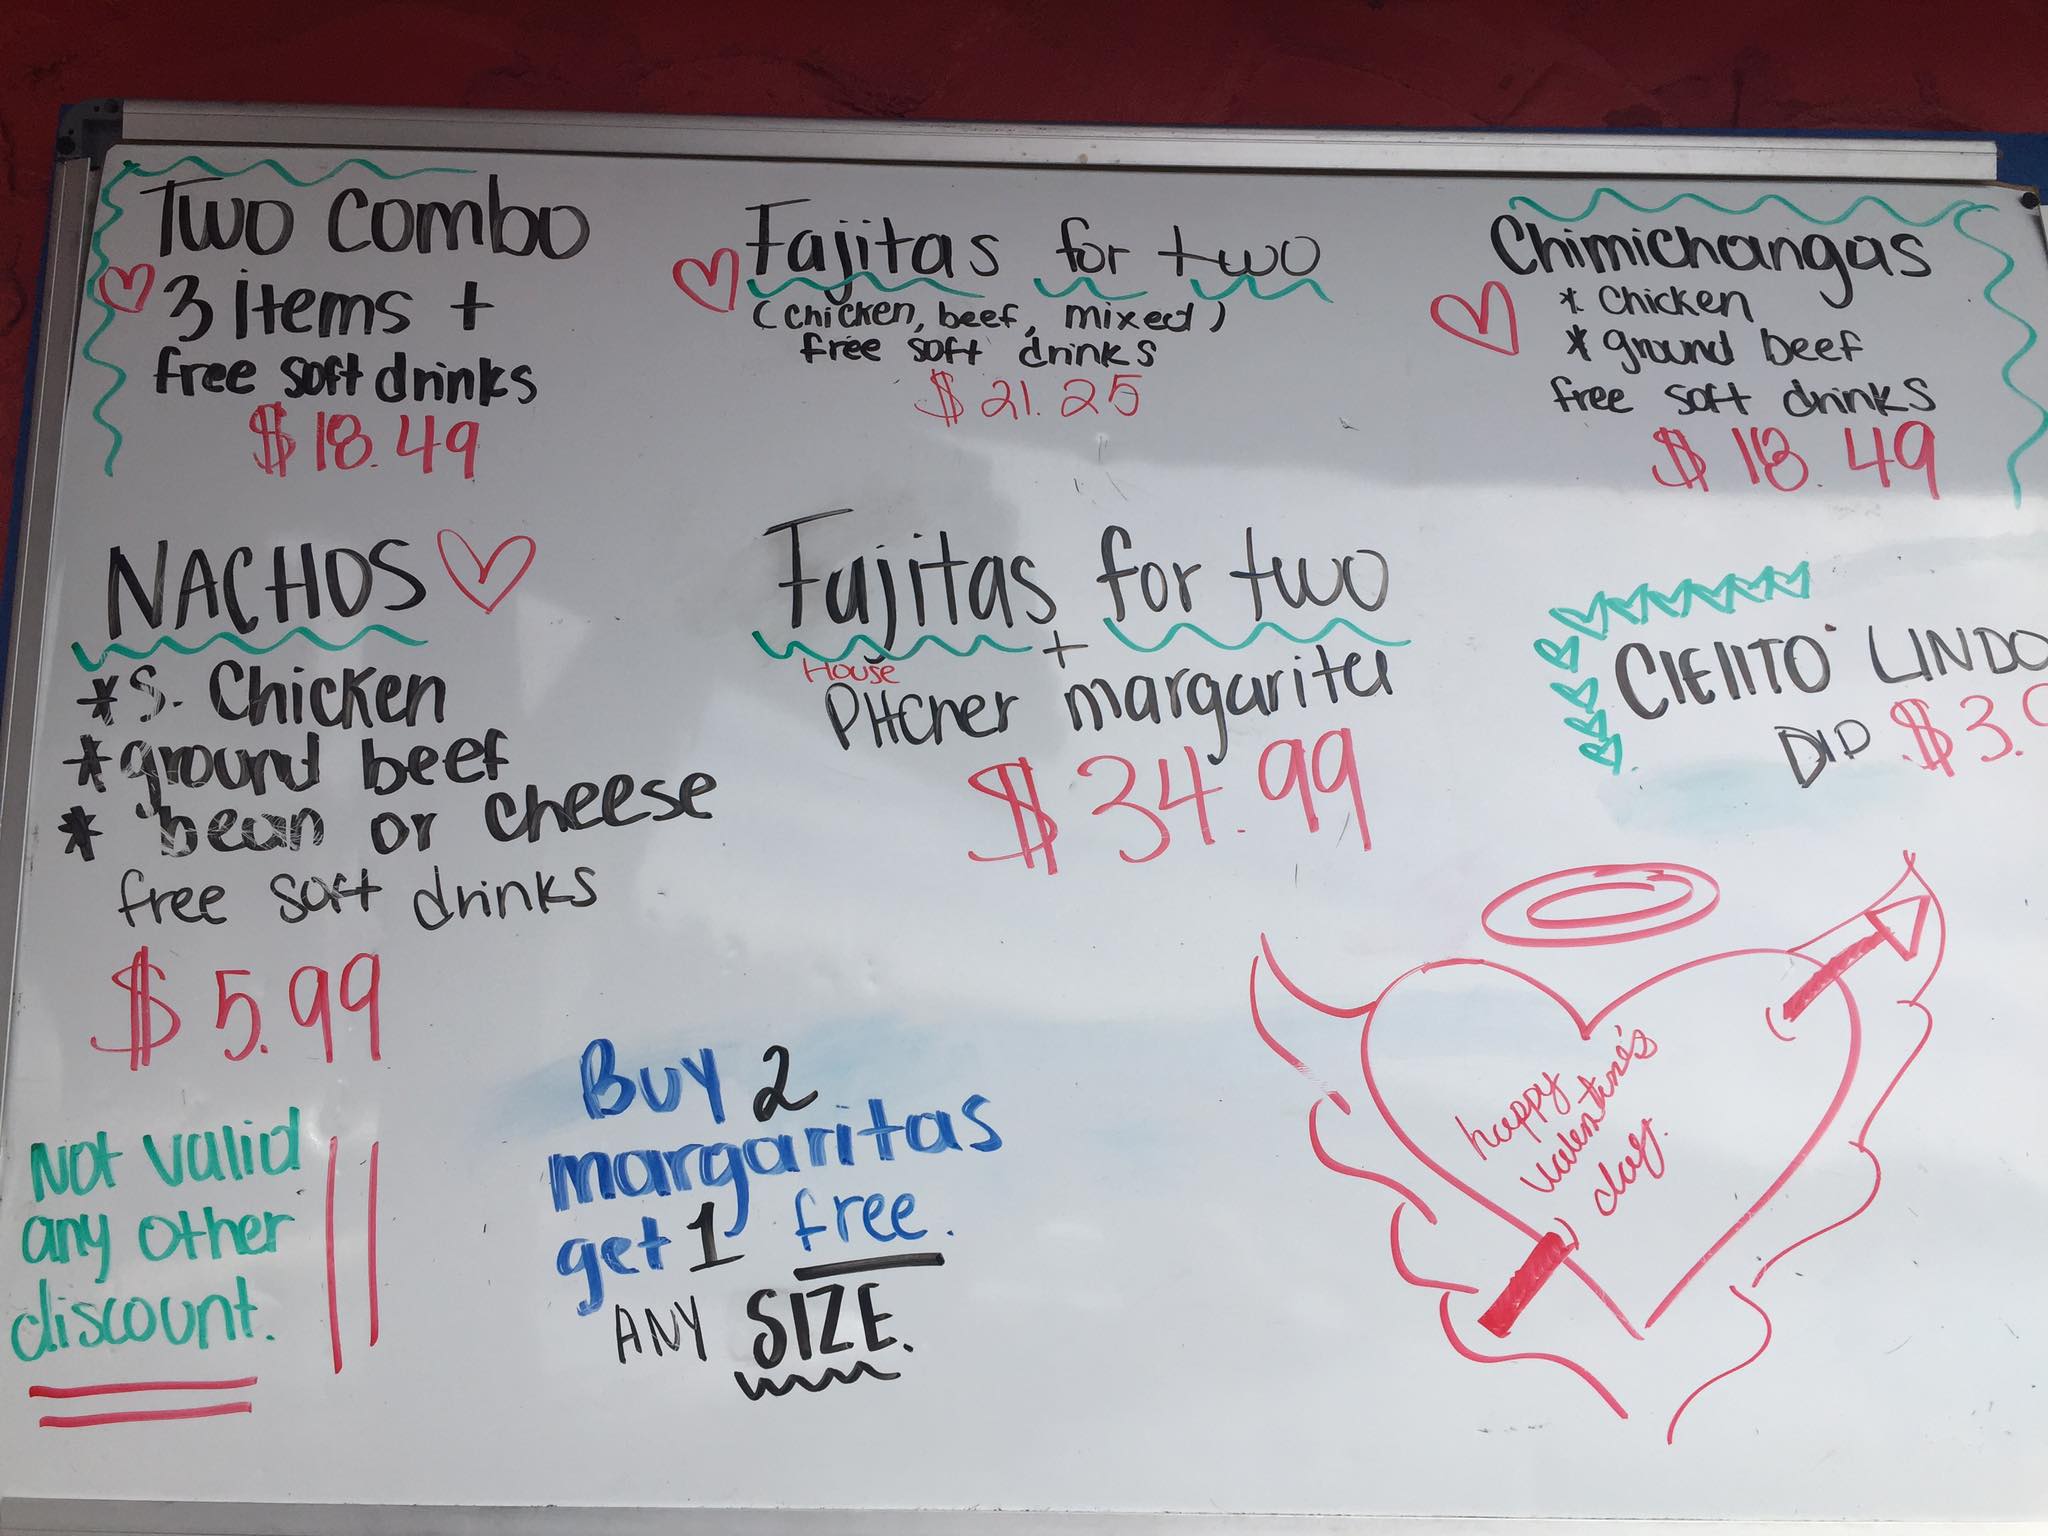 Two Combo
3 items +
free soft drinks
$18.49
Fajitas for two
(chicken, beef, mixed)
free soft drinks
$21.25
Chimichangas
* chicken
* ground beef
free soft drinks
$18.49
NACHOS
*S. Chicken
*ground beef
* bean or cheese
free soft drinks
$5.99
Fajitas for two
+
House
Pitcher margarita
$34.99
CIELITO LINDO
DIP $3.
Not valid
any other
discount.
Buy 2
margaritas
get 1 free.
ANY SIZE.
happy
valentine's
day.